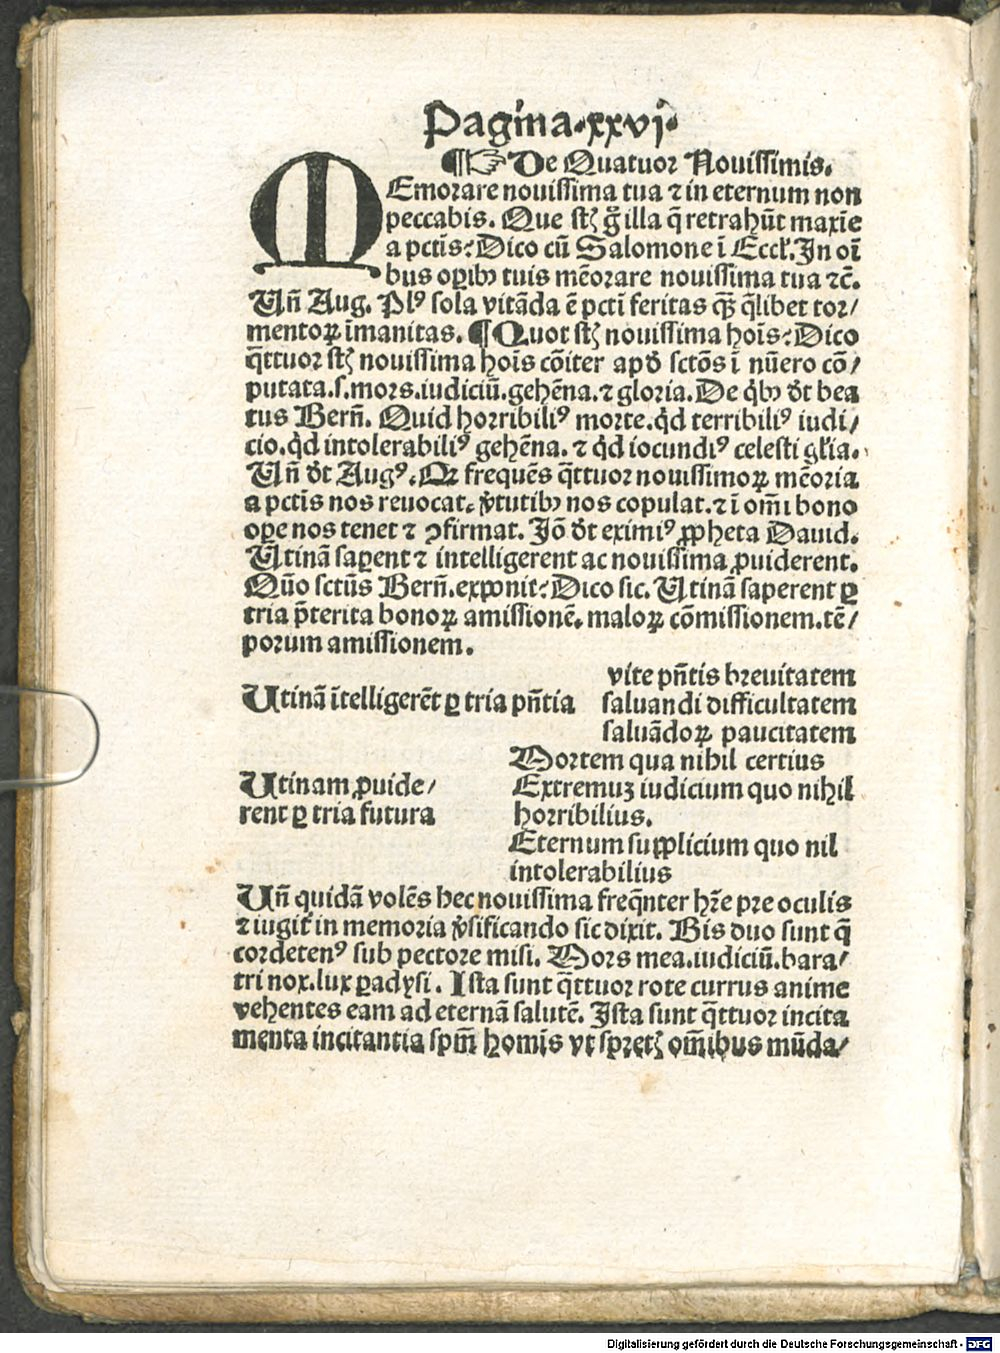 Pagina·xxvj·
¶☞De Quatuor Nouissimis.
MEmorare nouissima tua ⁊ in eternum non
peccabis. Que st̄ꝫ gͦ illa q̄ retrahūt maxīe
a pctīs: Dico cū Salomone ī Eccl̓. In oī
bus oꝑibꝫ tuis mēorare nouissima tua ⁊c̄.
Un̄ Aug. Plꝰ sola vitāda ē pctī feritas qͣꝫ q̄libet tor/
mentoꝝ īmanitas. ¶Quot st̄ꝫ nouissima hoīs: Dico
q̄ttuor st̄ꝫ nouissima hoīs cōiter apd̓ sctōs ī nūero cō/
putata.s.mors.iudiciū.gehēna.⁊ gloria. De qͥbꝫ dt̓ bea
tus Bern̄. Quid horribiliꝰ morte.qͥd terribiliꝰ iudi/
cio.qͥd intolerabiliꝰ gehēna.⁊ qͥd iocundiꝰ celesti gl̓ia.
Un̄ dt̓ Augꝰ. Qꝛ frequēs q̄ttuor nouissimoꝝ mēoria
a pctīs nos reuocat. v̓tutibꝫ nos copulat.⁊ ī om̄i bono
oꝑe nos tenet ⁊ ꝯfirmat. Jō dt̓ eximiꝰ ꝓpheta Dauid.
Utinā saꝑent ⁊ intelligerent ac nouissima ꝓuiderent.
Quō sctūs Bern̄.exponit: Dico sic. Utinā saperent ꝑ
tria p̄terita bonoꝝ amissionē. maloꝝ cōmissionem.tē/
porum amissionem.
vite pn̄tis breuitatem
Utinā ītelligerēt ꝑ tria pn̄tia saluandi difficultatem
saluādoꝝ paucitatem
Mortem qua nihil certius
Utinam ꝓuide/ Extremuꝫ iudicium quo nihil
rent ꝑ tria futura horribilius.
Eternum supplicium quo nil
intolerabilius
Un̄ quidā volēs hec nouissima freq̄nter hr̄e pre oculis
⁊ iugit̓ in memoria v̓sificando sic dixit. Bis duo sunt q̄
cordetenꝰ sub pectore misi. Mors mea.iudiciū.bara/
tri nox.lux ꝑadysi. Ista sunt q̄ttuor rote currus anime
vehentes eam ad eternā salutē. Ista sunt q̄ttuor incita
menta incitantia spm̄ homīs vt spretꝫ om̄ibus mūda/
Digitalisierung gefördert durch die Deutsche Forschungsgemeinschaft - DFG